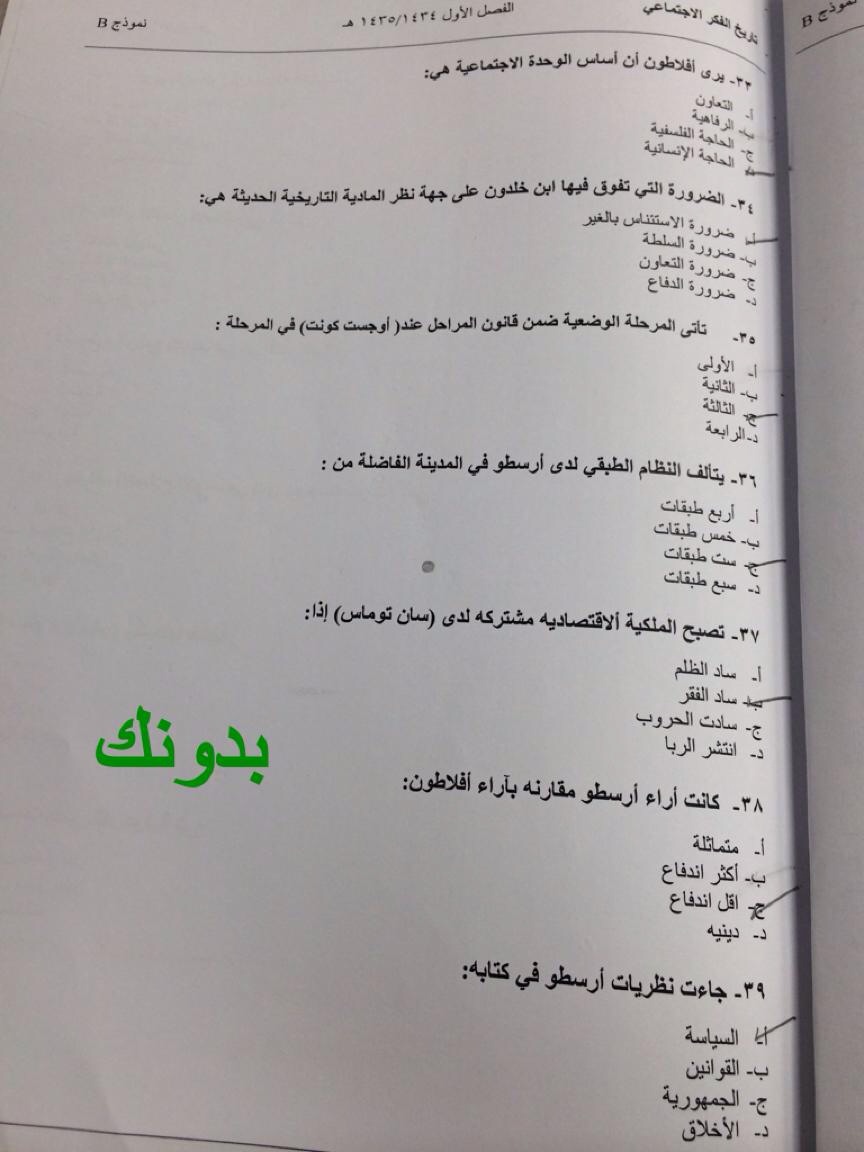 تاريخ الفكر الاجتماعي الفصل الأول ١٤٣٥/١٤٣٤ هـ نموذج B
نموذج B
٣٣- يرى أفلاطون أن أساس الوحدة الاجتماعية هي:
أ- التعاون
ب- الرفاهية
ج- الحاجة الفلسفية
د- الحاجة الإنسانية
٣٤- الضرورة التي تفوق فيها ابن خلدون على جهة نظر المادية التاريخية الحديثة هي:
أ- ضرورة الاستئناس بالغير
ب- ضرورة السلطة
ج- ضرورة التعاون
د- ضرورة الدفاع
٣٥- تأتى المرحلة الوضعية ضمن قانون المراحل عند( أوجست كونت) في المرحلة :
أ- الأولى
ب- الثانية
ج- الثالثة
د- الرابعة
٣٦- يتألف النظام الطبقي لدى أرسطو في المدينة الفاضلة من :
أ- أربع طبقات
ب- خمس طبقات
ج- ست طبقات
د- سبع طبقات
٣٧- تصبح الملكية ألاقتصاديه مشتركه لدى (سان توماس) إذا:
أ- ساد الظلم
ب- ساد الفقر
ج- سادت الحروب
د- انتشر الربا
بدونك
٣٨- كانت أراء أرسطو مقارنه بآراء أفلاطون:
أ- متماثلة
ب- أكثر اندفاع
ج- اقل اندفاع
د- دينيه
٣٩- جاءت نظريات أرسطو في كتابه:
أ- السياسة
ب- القوانين
ج- الجمهورية
د- الأخلاق